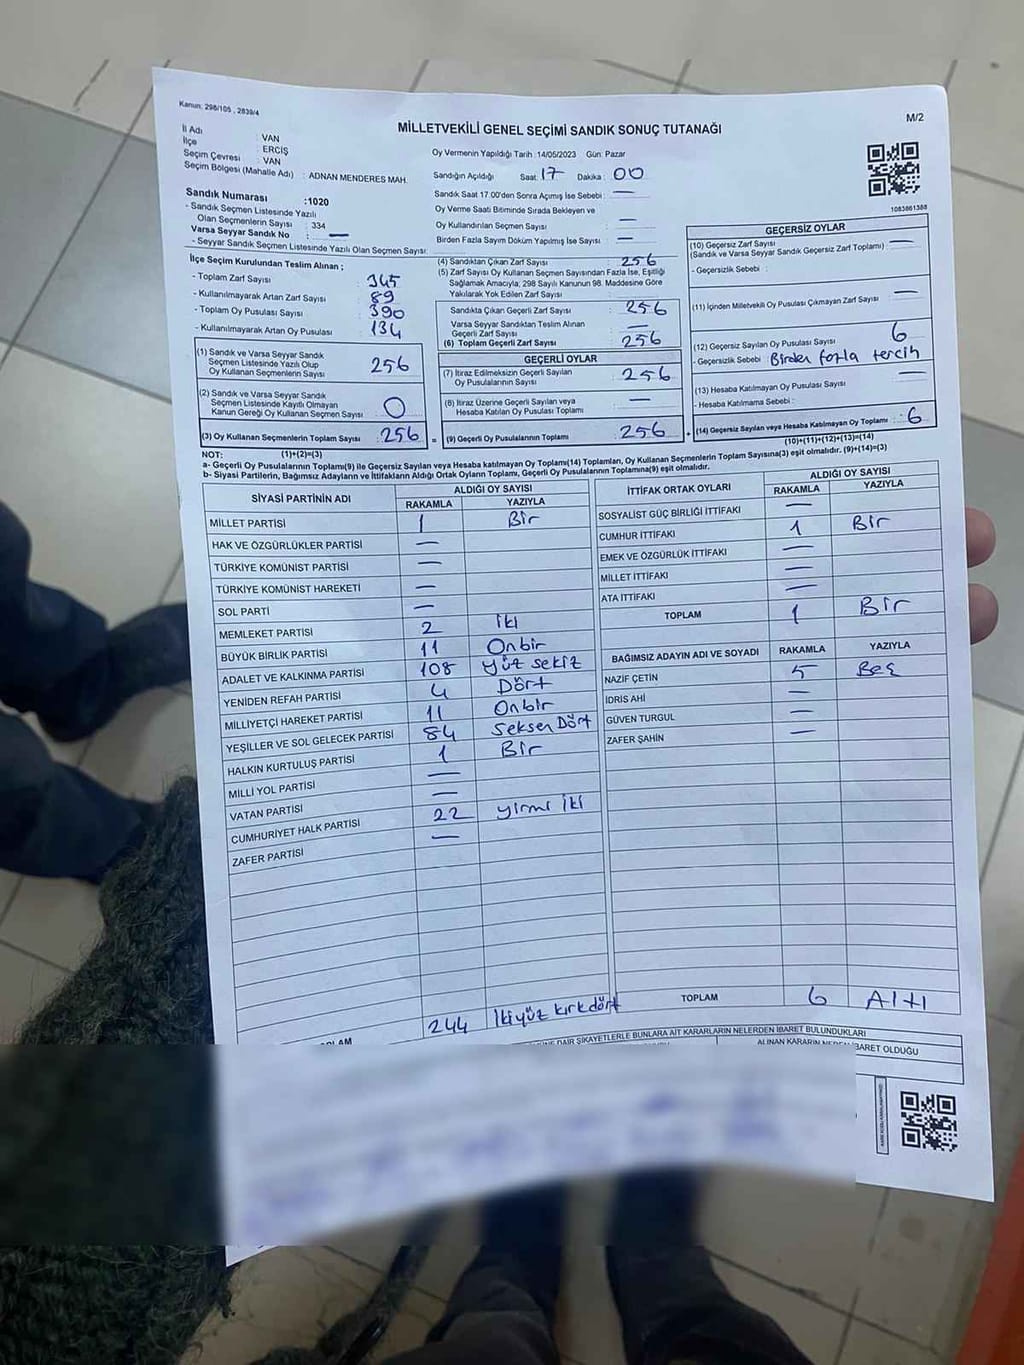 Kanun: 298/105 , 2839/4
M/2
MİLLETVEKİLİ GENEL SEÇİMİ SANDIK SONUÇ TUTANAĞI
İl Adı : VAN
İlçe : ERCİŞ
Seçim Çevresi : VAN
Seçim Bölgesi (Mahalle Adı) : ADNAN MENDERES MAH.
Sandık Numarası :1020
- Sandık Seçmen Listesinde Yazılı
Olan Seçmenlerin Sayısı : 334
Varsa Seyyar Sandık No : —
- Seyyar Sandık Seçmen Listesinde Yazılı Olan Seçmen Sayısı:
İlçe Seçim Kurulundan Teslim Alınan ;
- Toplam Zarf Sayısı : 345
- Kullanılmayarak Artan Zarf Sayısı : 89
- Toplam Oy Pusulası Sayısı : 390
- Kullanılmayarak Artan Oy Pusulası : 134
(1) Sandık ve Varsa Seyyar Sandık
Seçmen Listesinde Yazılı Olup
Oy Kullanan Seçmenlerin Sayısı : 256
(2) Sandık ve Varsa Seyyar Sandık
Seçmen Listesinde Kayıtlı Olmayan
Kanun Gereği Oy Kullanan Seçmen Sayısı : 0
(3) Oy Kullanan Seçmenlerin Toplam Sayısı : 256
(1)+(2)=(3)
Oy Vermenin Yapıldığı Tarih :14/05/2023 Gün: Pazar
Sandığın Açıldığı Saat: 17 Dakika : 00
Sandık Saat 17.00'den Sonra Açılmış İse Sebebi : —
Oy Verme Saati Bitiminde Sırada Bekleyen ve
Oy Kullandırılan Seçmen Sayısı : —
Birden Fazla Sayım Döküm Yapılmış İse Sayısı : —
(4) Sandıktan Çıkan Zarf Sayısı : 256
(5) Zarf Sayısı Oy Kullanan Seçmen Sayısından Fazla İse, Eşitliği
Sağlamak Amacıyla, 298 Sayılı Kanunun 98. Maddesine Göre
Yakılarak Yok Edilen Zarf Sayısı :
Sandıkta Çıkan Geçerli Zarf Sayısı : 256
Varsa Seyyar Sandıktan Teslim Alınan
Geçerli Zarf Sayısı : —
(6) Toplam Geçerli Zarf Sayısı : 256
GEÇERLİ OYLAR
(7) İtiraz Edilmeksizin Geçerli Sayılan
Oy Pusulalarının Sayısı : 256
(8) İtiraz Üzerine Geçerli Sayılan veya
Hesaba Katılan Oy Pusulası Toplamı : —
= (9) Geçerli Oy Pusulalarının Toplamı : 256
1083861388
GEÇERSİZ OYLAR
(10) Geçersiz Zarf Sayısı
(Sandık ve Varsa Seyyar Sandık Geçersiz Zarf Toplamı) : —
- Geçersizlik Sebebi :
(11) İçinden Milletvekili Oy Pusulası Çıkmayan Zarf Sayısı : —
(12) Geçersiz Sayılan Oy Pusulası Sayısı : 6
- Geçersizlik Sebebi : Birden fazla tercih
(13) Hesaba Katılmayan Oy Pusulası Sayısı : —
- Hesaba Katılmama Sebebi :
+ (14) Geçersiz Sayılan veya Hesaba Katılmayan Oy Toplamı : 6
(10)+(11)+(12)+(13)=(14)
NOT:
a- Geçerli Oy Pusulalarının Toplamı(9) ile Geçersiz Sayılan veya Hesaba katılmayan Oy Toplamı(14) Toplamları, Oy Kullanan Seçmenlerin Toplam Sayısına(3) eşit olmalıdır. (9)+(14)=(3)
b- Siyasi Partilerin, Bağımsız Adayların ve İttifakların Aldığı Ortak Oyların Toplamı, Geçerli Oy Pusulalarının Toplamına(9) eşit olmalıdır.
SİYASİ PARTİNİN ADI ALDIĞI OY SAYISI
RAKAMLA YAZIYLA
MİLLET PARTİSİ 1 Bir
HAK VE ÖZGÜRLÜKLER PARTİSİ —
TÜRKİYE KOMÜNİST PARTİSİ —
TÜRKİYE KOMÜNİST HAREKETİ —
SOL PARTİ —
MEMLEKET PARTİSİ 2 İki
BÜYÜK BİRLİK PARTİSİ 11 Onbir
ADALET VE KALKINMA PARTİSİ 108 Yüz sekiz
YENİDEN REFAH PARTİSİ 4 Dört
MİLLİYETÇİ HAREKET PARTİSİ 11 Onbir
YEŞİLLER VE SOL GELECEK PARTİSİ 84 Seksen Dört
HALKIN KURTULUŞ PARTİSİ 1 Bir
MİLLİ YOL PARTİSİ —
VATAN PARTİSİ —
CUMHURİYET HALK PARTİSİ 22 yirmi iki
ZAFER PARTİSİ —
244 İkiyüz kırkdört
İTTİFAK ORTAK OYLARI ALDIĞI OY SAYISI
RAKAMLA YAZIYLA
SOSYALİST GÜÇ BİRLİĞİ İTTİFAKI —
CUMHUR İTTİFAKI 1 Bir
EMEK VE ÖZGÜRLÜK İTTİFAKI —
MİLLET İTTİFAKI —
ATA İTTİFAKI —
TOPLAM 1 Bir
BAĞIMSIZ ADAYIN ADI VE SOYADI RAKAMLA YAZIYLA
NAZİF ÇETİN 5 Beş
İDRİS AHİ —
GÜVEN TURGUL —
ZAFER ŞAHİN —
TOPLAM 6 Altı
DAİR ŞİKAYETLERLE BUNLARA AİT KARARLARIN NELERDEN İBARET BULUNDUKLARI
ALINAN KARARIN NEDEN İBARET OLDUĞU